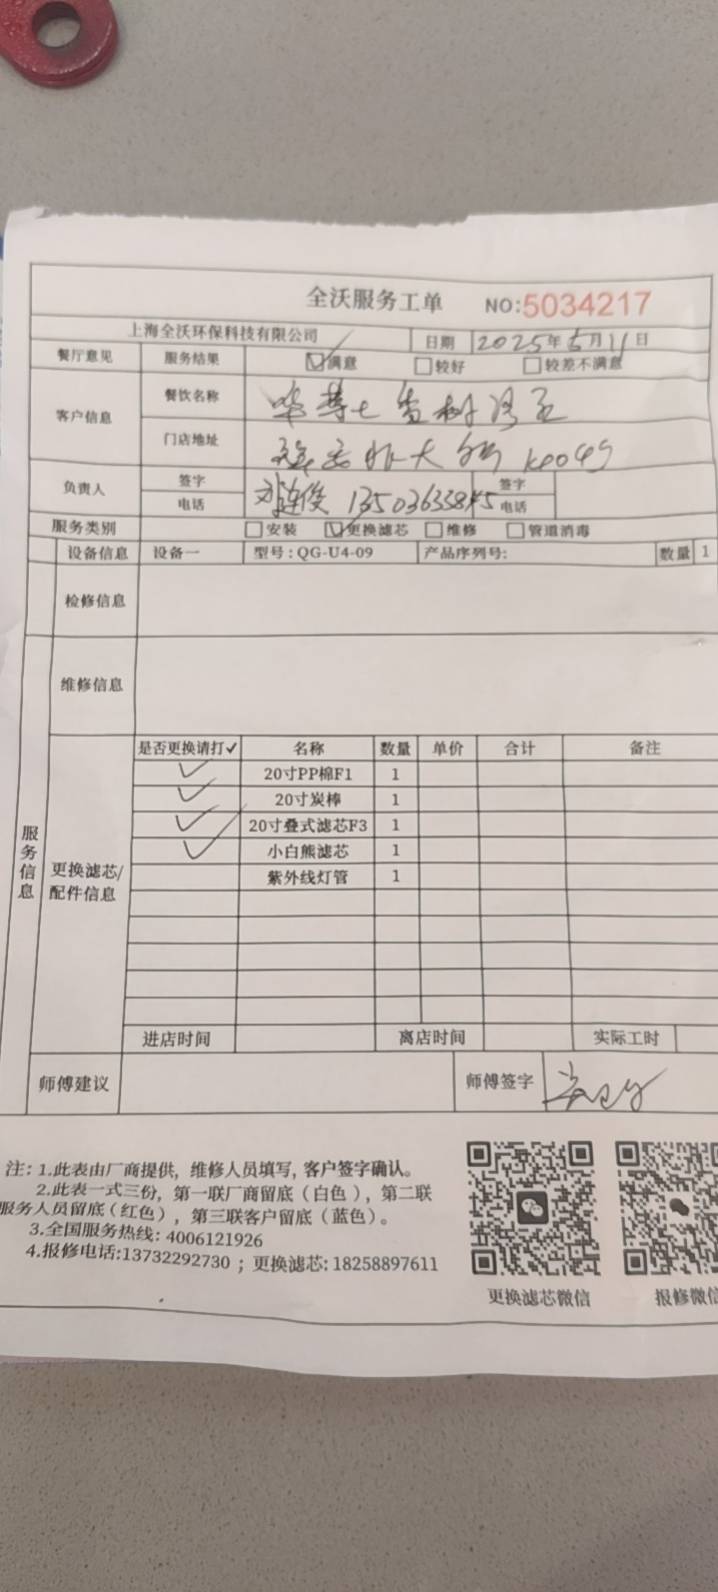 全沃服务工单 NO:5034217
上海全沃环保科技有限公司 日期 2025年5月11日
餐厅意见 服务结果 ☑满意 □较好 □较差不满意
客户信息 餐饮名称
门店地址
负责人 签字 签字
电话 电话
服务类别 □安装 ☑更换滤芯 □维修 □管道消毒
设备信息 设备一 型号:QG-U4-09 产品序列号: 数量 1
检修信息
维修信息
服务信息
更换滤芯/配件信息
是否更换请打✓ 名称 数量 单价 合计 备注
✓ 20寸PP棉F1 1
✓ 20寸炭棒 1
✓ 20寸叠式滤芯F3 1
✓ 小白熊滤芯 1
紫外线灯管 1
进店时间 离店时间 实际工时
师傅建议 师傅签字
注: 1.此表由厂商提供, 维修人员填写, 客户签字确认。
2.此表一式三份, 第一联厂商留底（白色）, 第二联
服务人员留底（红色）, 第三联客户留底（蓝色）。
3.全国服务热线: 4006121926
4.报修电话:13732292730 ; 更换滤芯: 18258897611
更换滤芯微信 报修微信